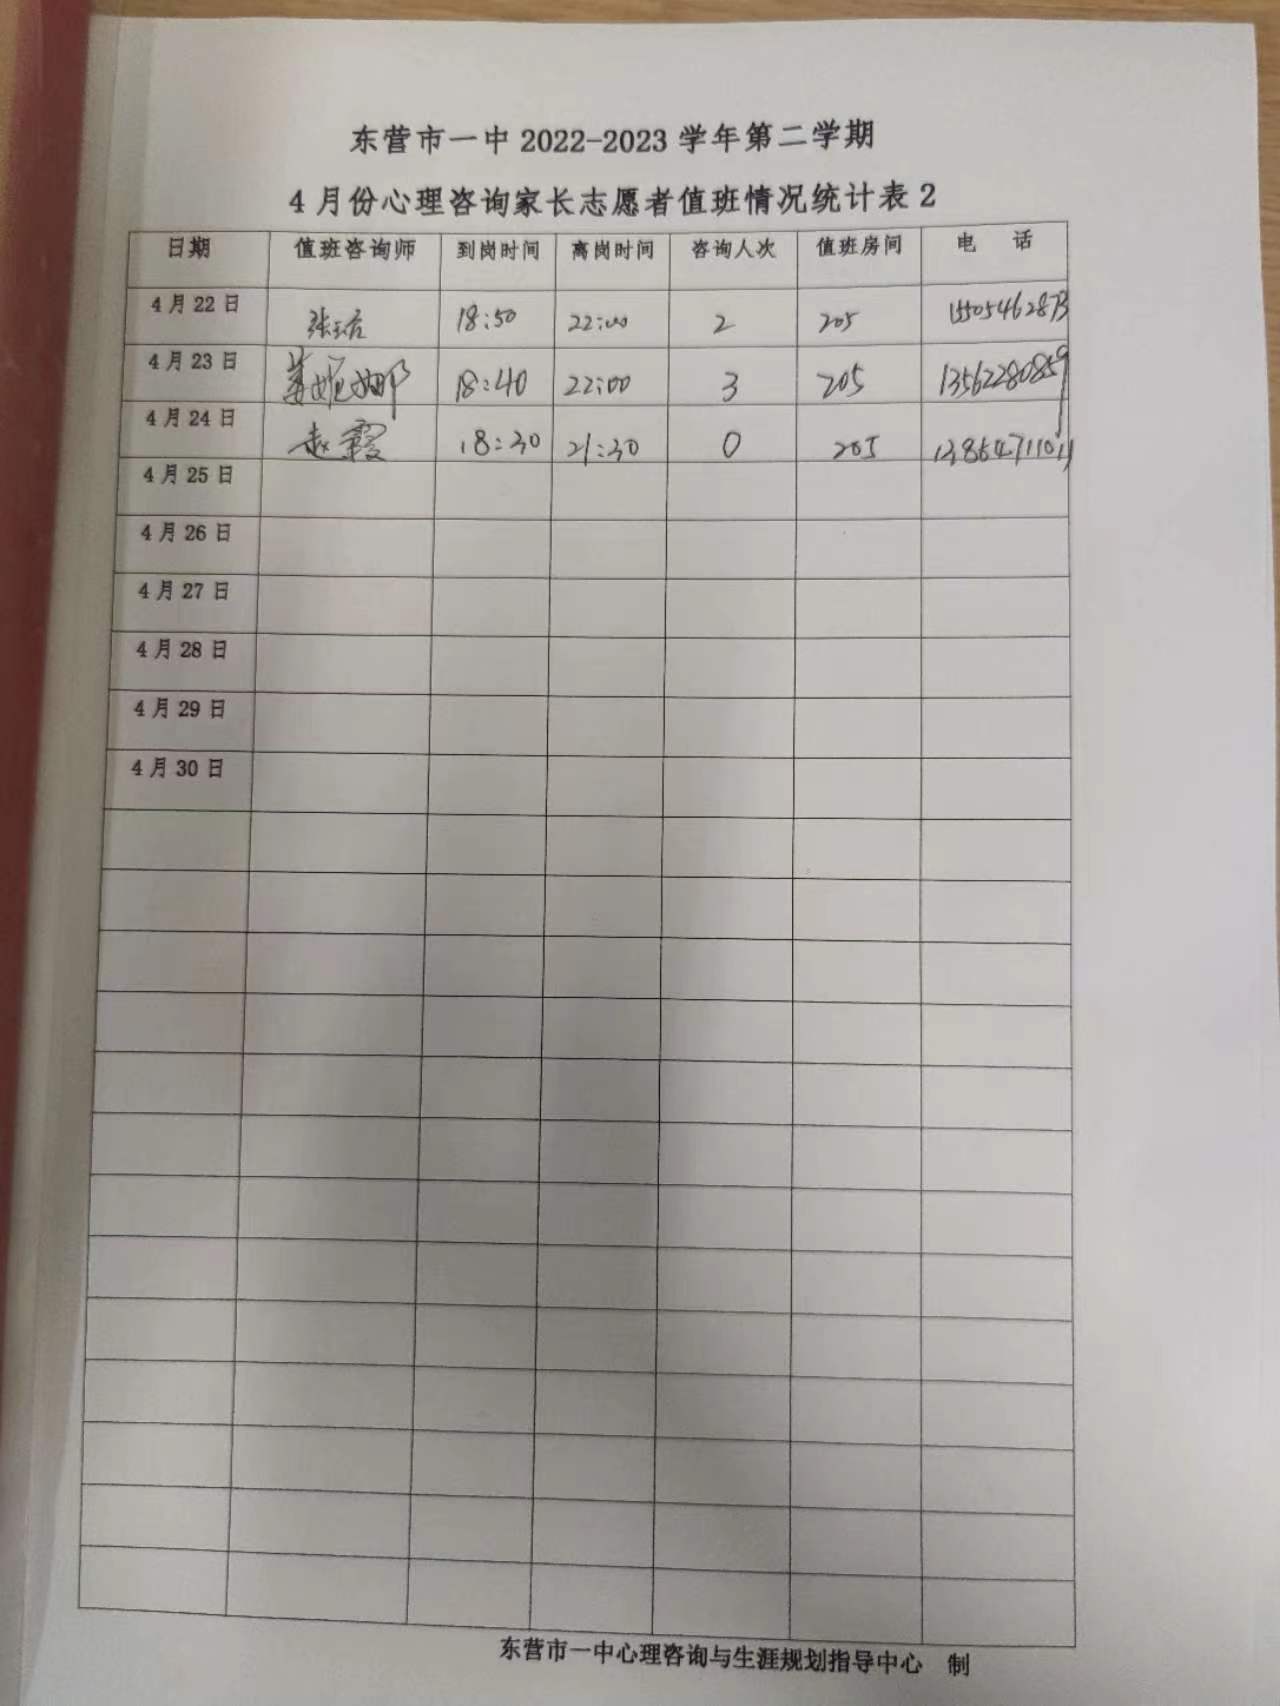 东营市一中 2022-2023 学年第二学期
4 月份心理咨询家长志愿者值班情况统计表 2
日期 值班咨询师 到岗时间 离岗时间 咨询人次 值班房间 电 话
4 月 22 日 18:50 22:00 2 205 15505462873
4 月 23 日 姜妮娜 18:40 22:00 3 205 13562280859
4 月 24 日 赵霞 18:30 21:30 0 205
4 月 25 日
4 月 26 日
4 月 27 日
4 月 28 日
4 月 29 日
4 月 30 日
东营市一中心理咨询与生涯规划指导中心 制